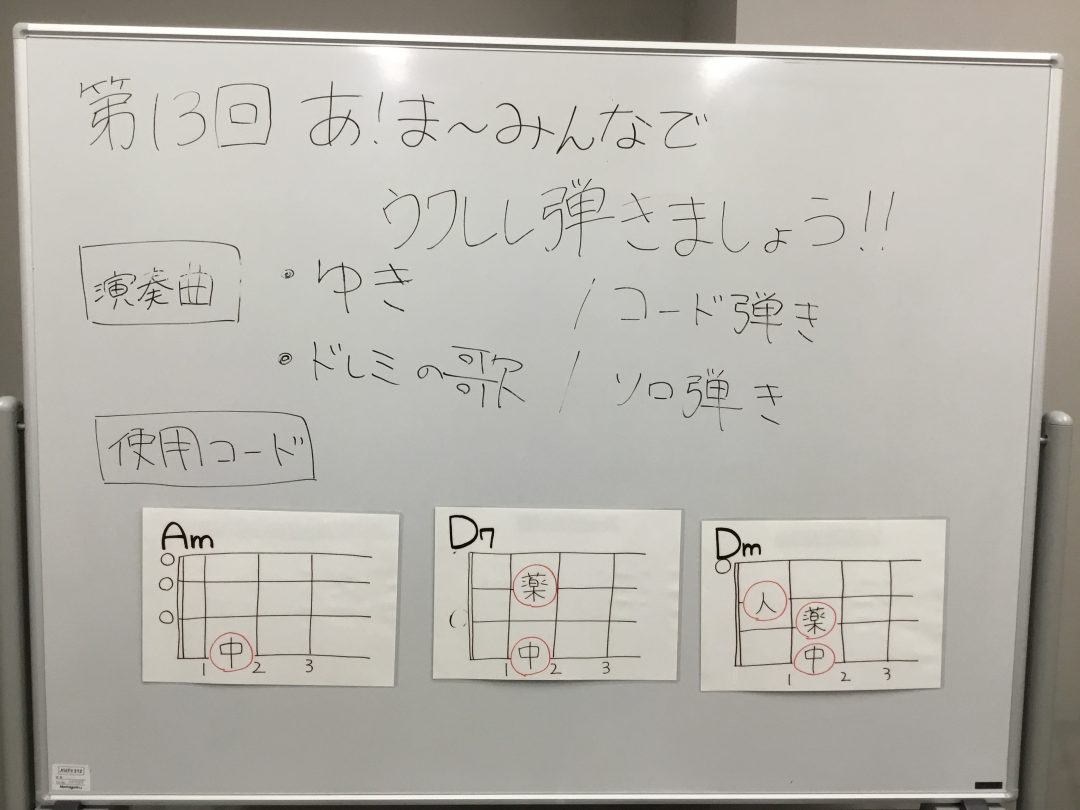 第13回 あ!ま〜みんなで
ウクレレ弾きましょう!!
演奏曲
・ゆき / コード弾き
・ドレミの歌 / ソロ弾き
使用コード
Am
中
1 2 3
D7
薬
中
1 2 3
Dm
人
薬
中
1 2 3